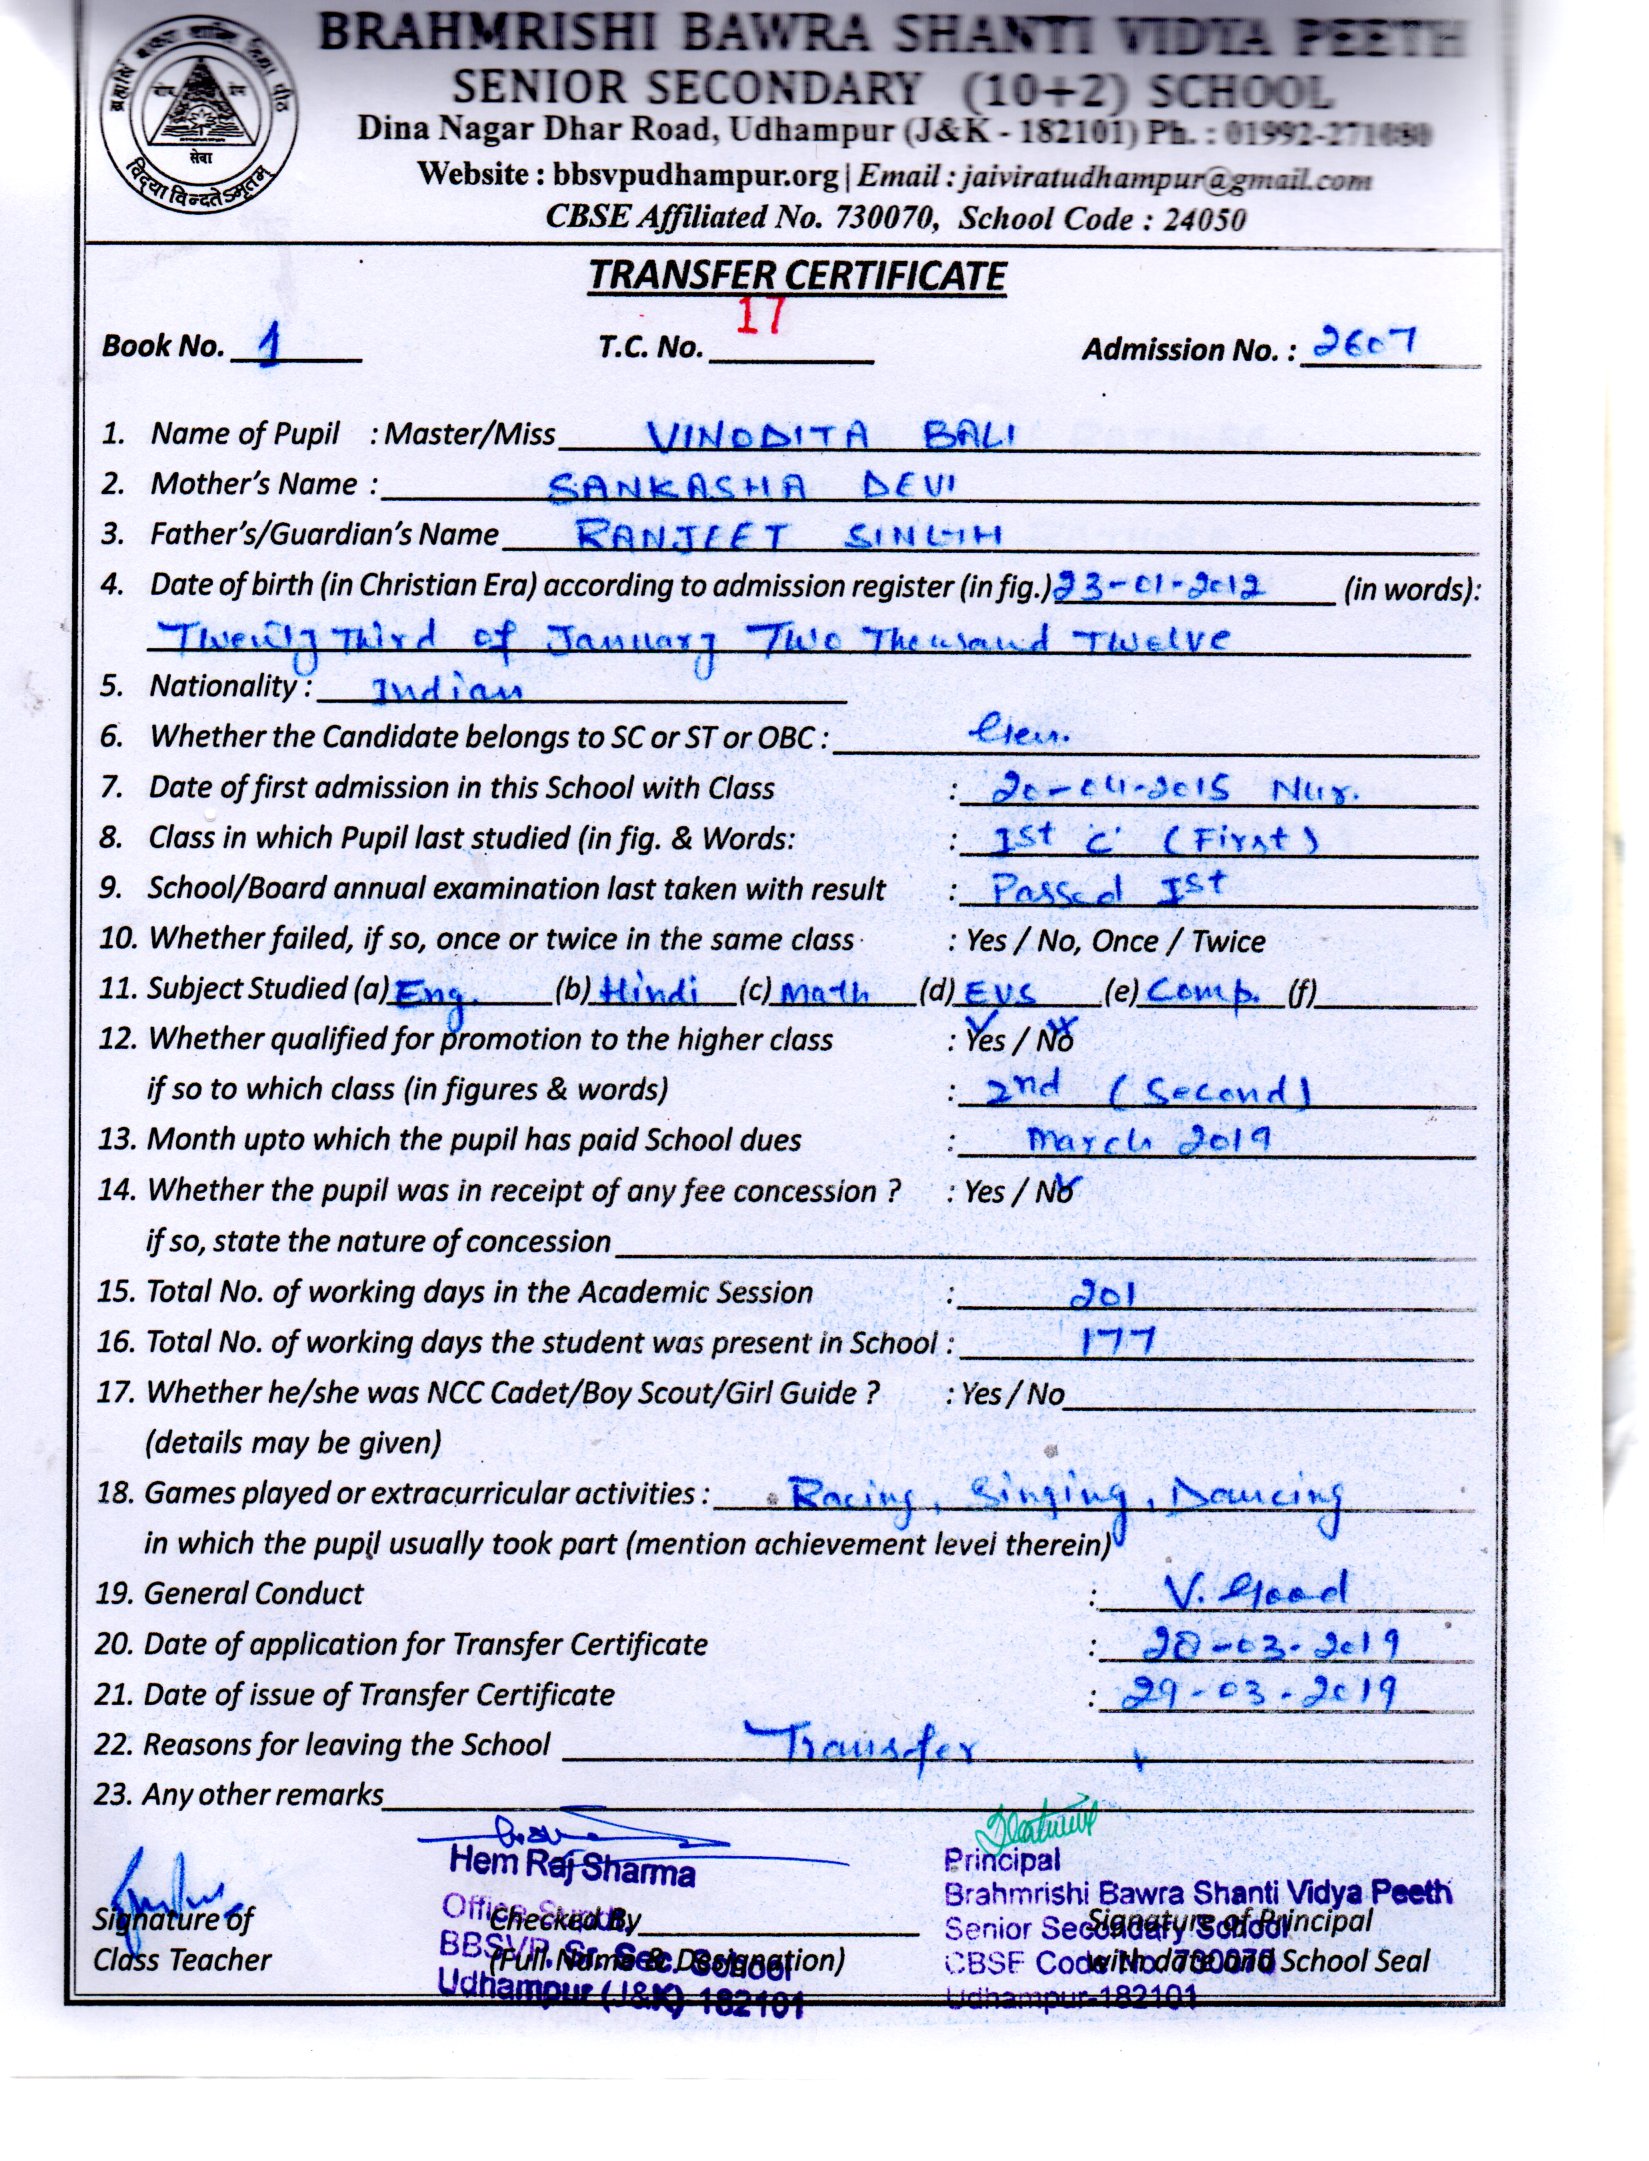 BRAHMRISHI BAWRA SHANTI VIDYA PEETH
SENIOR SECONDARY (10+2) SCHOOL
Dina Nagar Dhar Road, Udhampur (J&K - 182101) Ph. : 01992-271080
Website : bbsvpudhampur.org | Email : jaiviratudhampur@gmail.com
CBSE Affiliated No. 730070, School Code : 24050
ब्रह्मर्षि बावरा शान्ति विद्या पीठ
सेवा
विद्या विन्दतेऽमृतम्
TRANSFER CERTIFICATE
Book No. 1 T.C. No. 17 Admission No. : 2607
1. Name of Pupil : Master/Miss VINODITA BALI
2. Mother's Name : SANKASHA DEVI
3. Father's/Guardian's Name RANJEET SINGH
4. Date of birth (in Christian Era) according to admission register (in fig.) 23-01-2012 (in words):
Twenty Third of January Two Thousand Twelve
5. Nationality : Indian
6. Whether the Candidate belongs to SC or ST or OBC : Gen.
7. Date of first admission in this School with Class : 20-04-2015 Nur.
8. Class in which Pupil last studied (in fig. & Words: : Ist 'C' (First)
9. School/Board annual examination last taken with result : Passed Ist
10. Whether failed, if so, once or twice in the same class : Yes / No, Once / Twice
11. Subject Studied (a) Eng. (b) Hindi (c) Math (d) EVS (e) Comp. (f)
12. Whether qualified for promotion to the higher class : Yes / No
if so to which class (in figures & words) : 2nd (Second)
13. Month upto which the pupil has paid School dues : March 2019
14. Whether the pupil was in receipt of any fee concession ? : Yes / No
if so, state the nature of concession
15. Total No. of working days in the Academic Session : 201
16. Total No. of working days the student was present in School : 177
17. Whether he/she was NCC Cadet/Boy Scout/Girl Guide ? : Yes / No
(details may be given)
18. Games played or extracurricular activities : Racing, Singing, Dancing
in which the pupil usually took part (mention achievement level therein)
19. General Conduct : V. Good
20. Date of application for Transfer Certificate : 28-03-2019
21. Date of issue of Transfer Certificate : 29-03-2019
22. Reasons for leaving the School Transfer
23. Any other remarks
Hem Raj Sharma
Office Supdt.
BBSVP. Sr. Sec. School
Udhampur (J&K) 182101
Principal
Brahmrishi Bawra Shanti Vidya Peeth
Senior Secondary School
CBSE Code No. 730070
Udhampur-182101
Signature of
Class Teacher
Checked By
(Full Name & Designation)
Signature of Principal
with date and School Seal